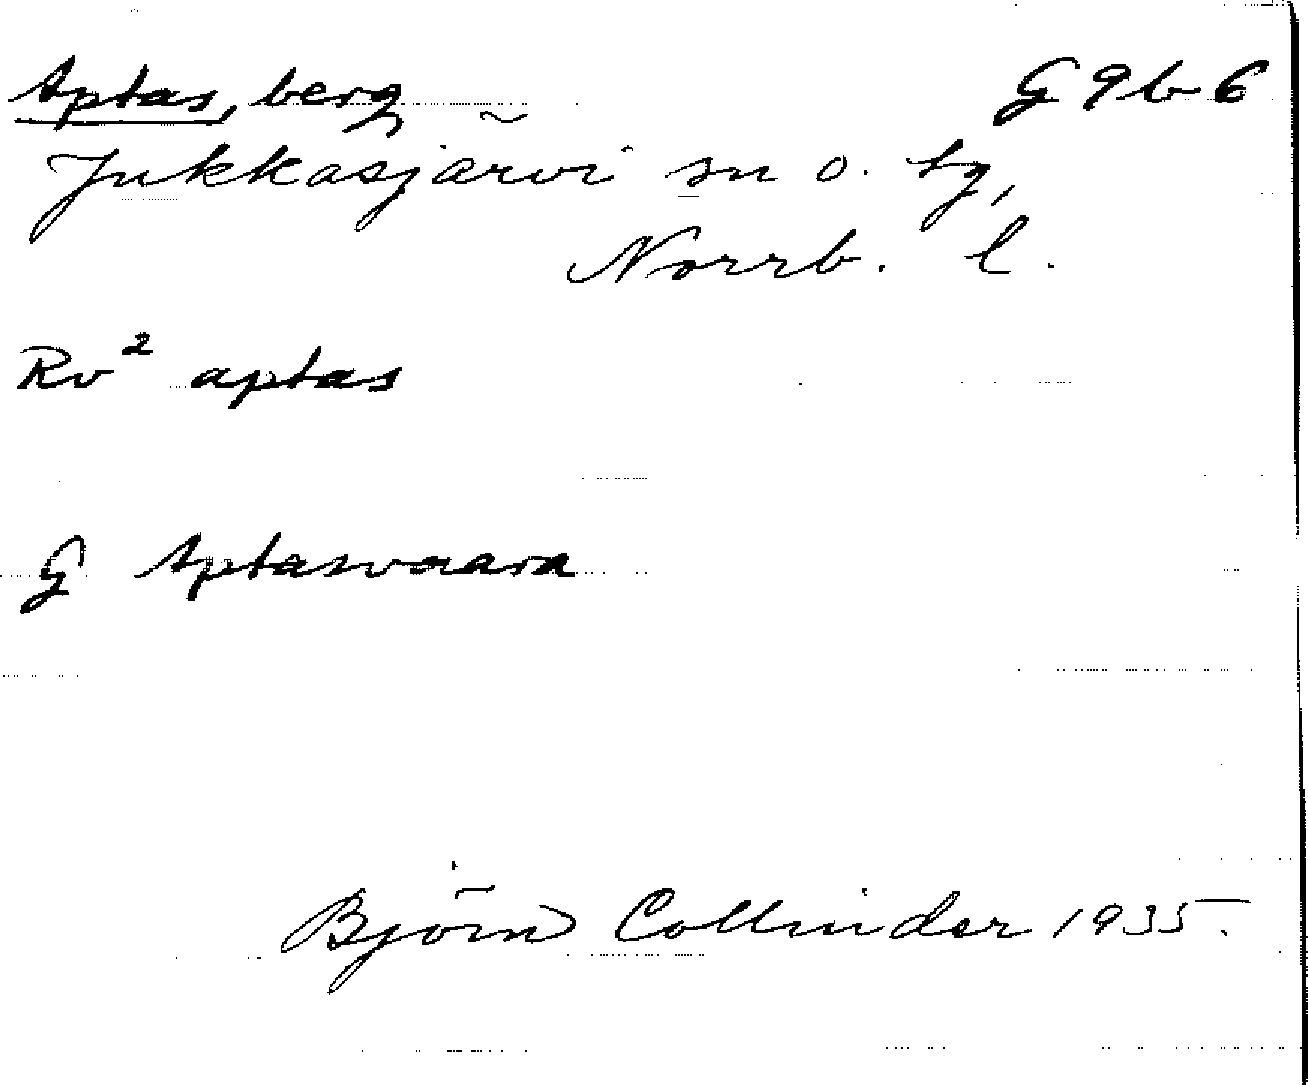 Aptas, berg G9b6
Jukkasjärvi sn o. tg,
Norrb. l.
Rv² aptas
G Aptasvaara
Björn Collinder 1935.